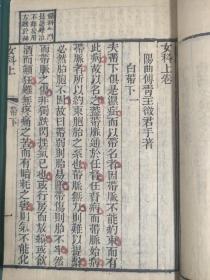 女科上卷
陽曲傅青主徵君手著
白帶下一
夫帶下俱是濕症而以帶名者因帶脈不能約束而有
此病故以名之蓋帶脈通於任督任督病而帶脈始病
帶脈者所以約束胞胎之系也帶脈無力則難以提繫
必然胎胞不固故曰帶弱則胎易墜帶傷則胎不牢然
而帶脈之傷非獨跌閃挫氣已也或行房而放縱或飲
酒而顛狂雖無疼痛之苦而有暗耗之害則氣不能
女科上
帶下